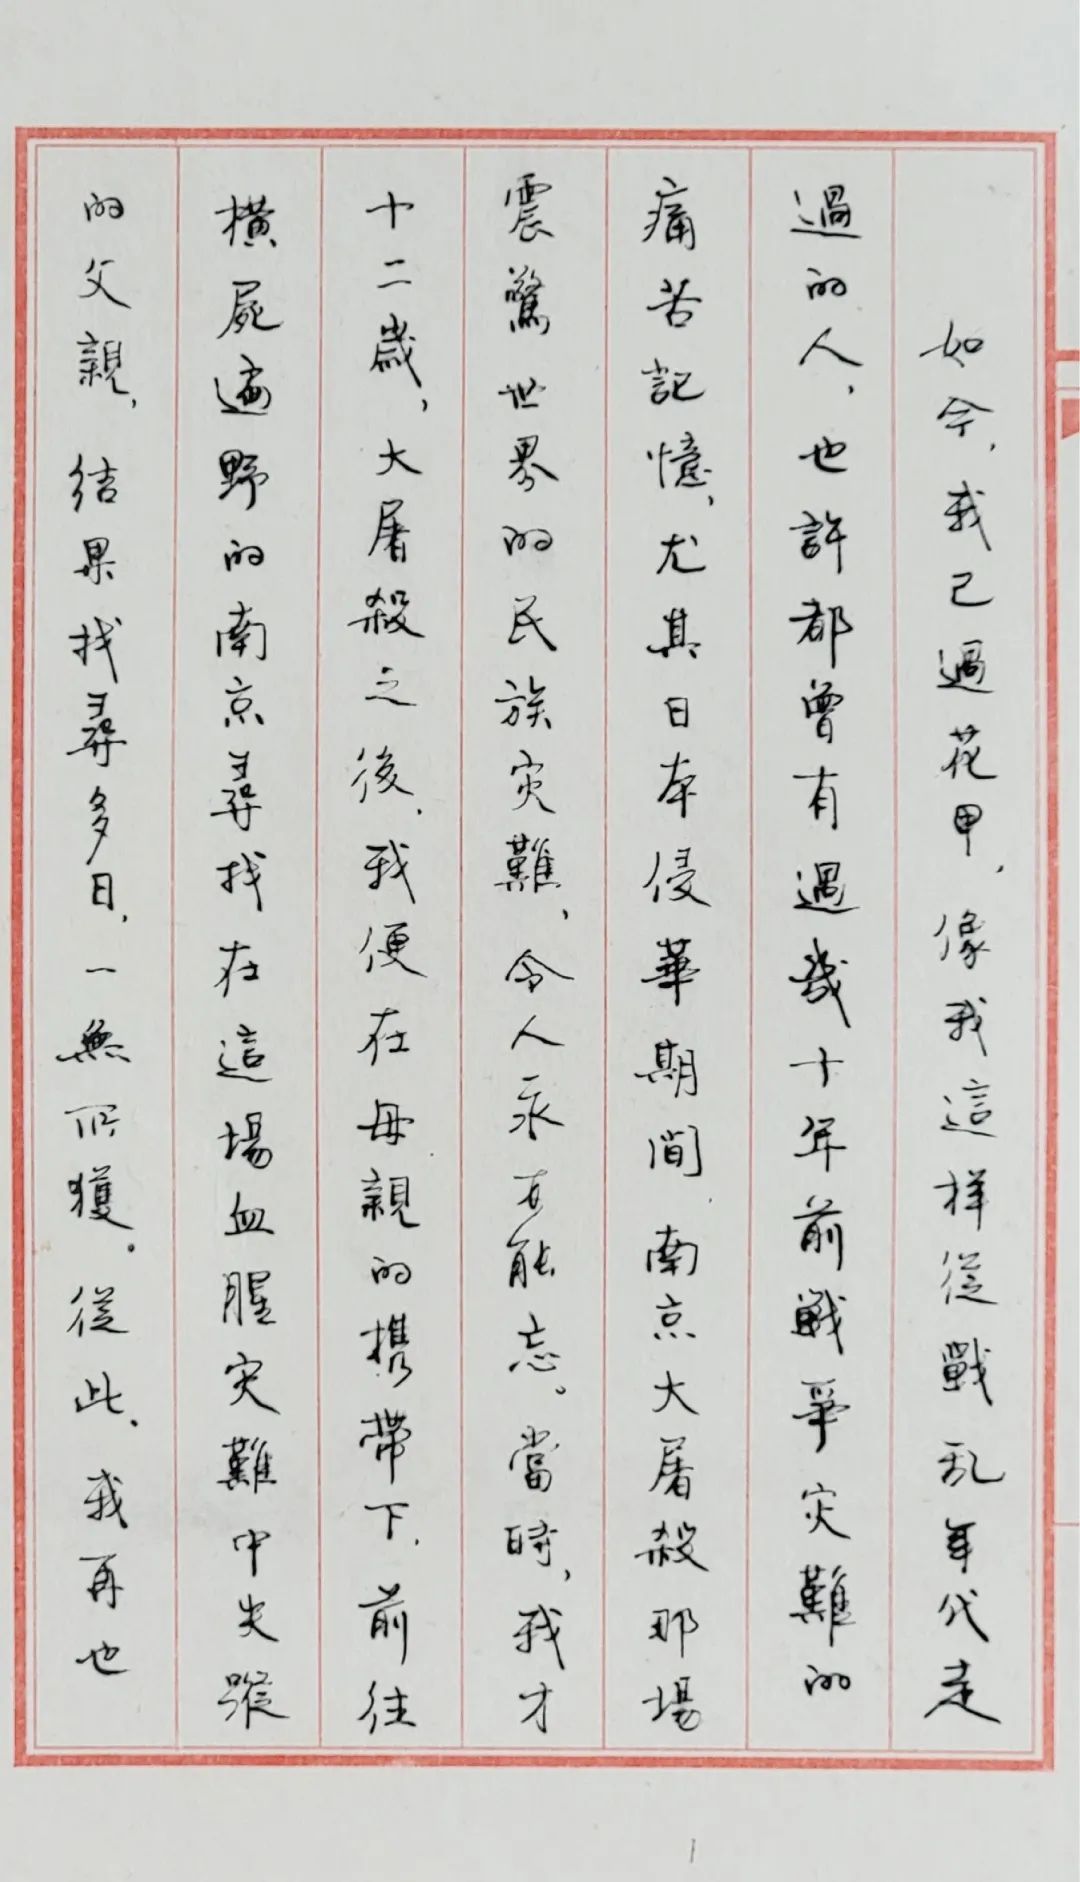 如今，我已過花甲，像我這样從戰乱年代走
過的人，也許都曾有過幾十年前戰爭灾難的
痛苦記憶，尤其日本侵華期間，南京大屠殺那場
震驚世界的民族灾難，令人永不能忘。當時，我才
十二歲，大屠殺之後，我便在母親的携帶下，前往
橫屍遍野的南京尋找在這場血腥灾難中失蹤
的父親，结果找尋多日，一無所獲。從此，我再也
1